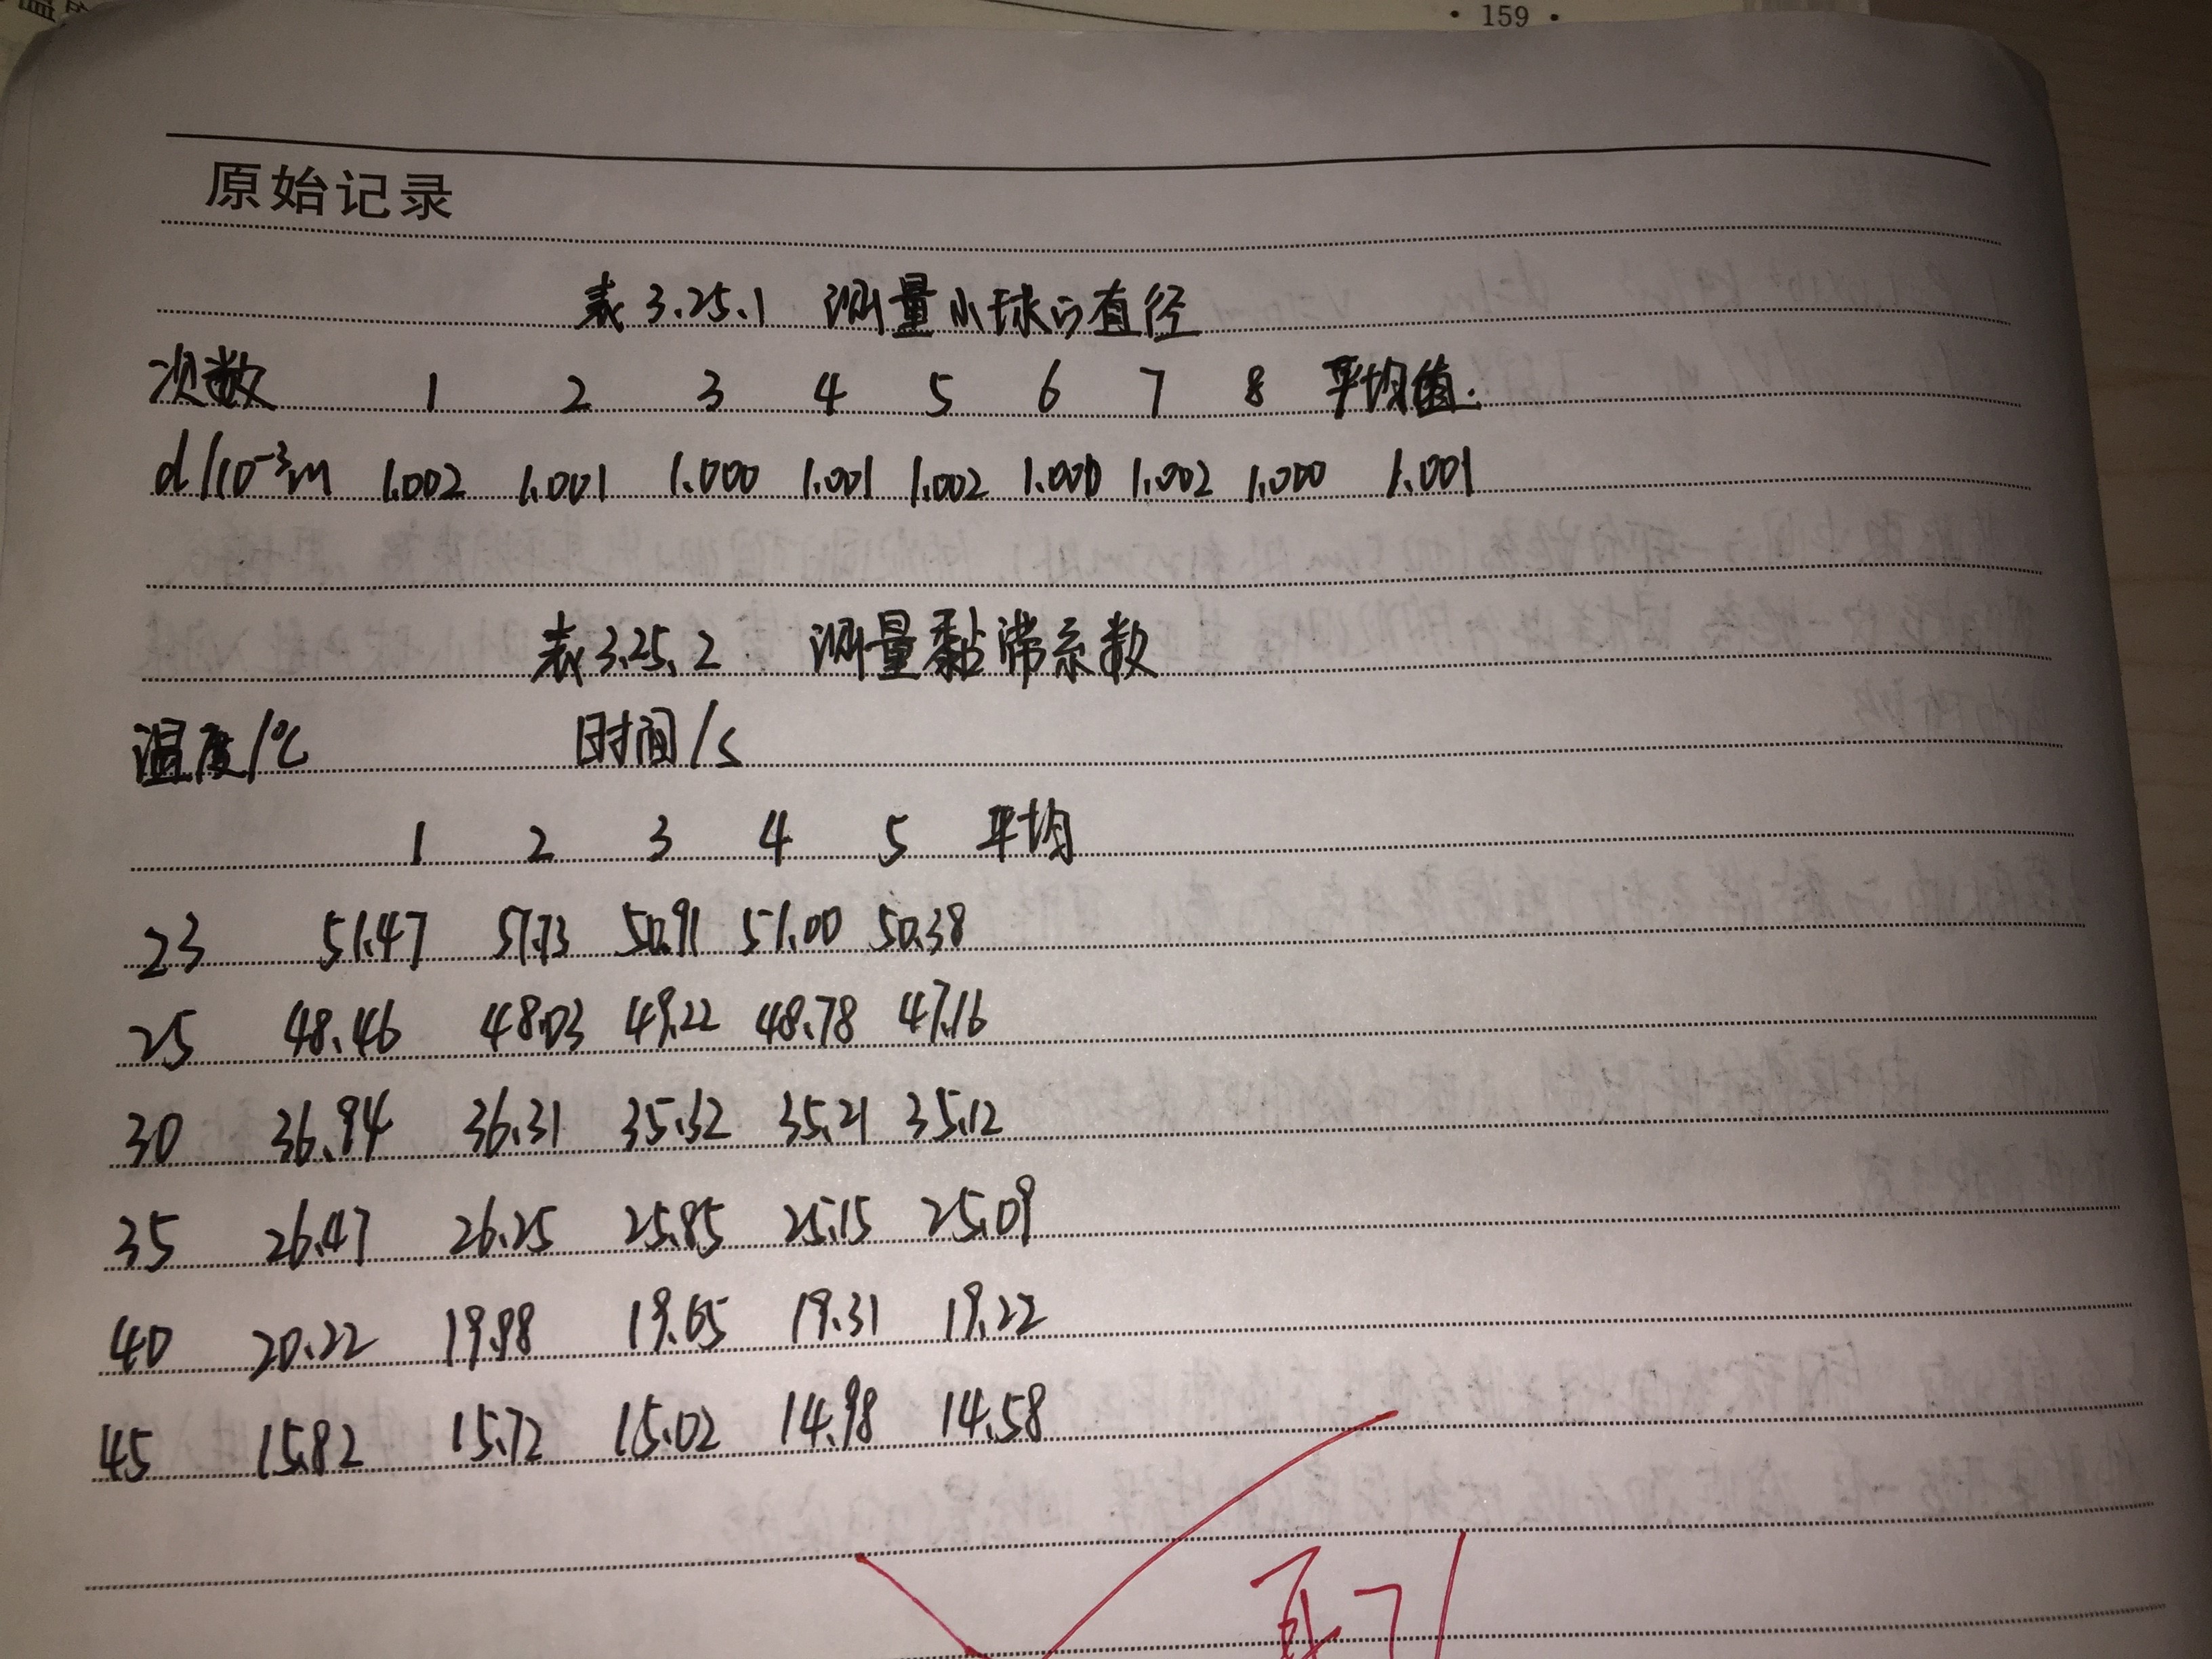 · 159 ·
原始记录
表 3.25.1 测量小球的直径
次数 1 2 3 4 5 6 7 8 平均值.
d/10⁻³m 1.002 1.001 1.000 1.001 1.002 1.000 1.002 1.000 1.001
表 3.25.2 测量黏滞系数
温度/℃ 时间/s
1 2 3 4 5 平均
23 51.47 51.73 50.91 51.00 50.38
25 48.46 48.03 49.22 48.78 47.16
30 36.94 36.31 35.32 35.21 35.12
35 26.47 26.25 25.85 25.15 25.09
40 20.22 19.98 19.65 19.31 19.22
45 15.82 15.72 15.02 14.98 14.58